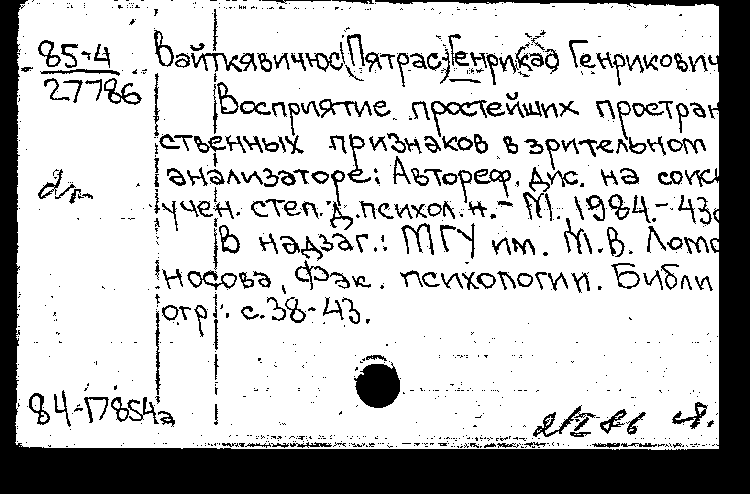 85-4
27786
Вайткявичюс (Пятрас-Генрикас Генрикович
Восприятие простейших простран
ственных признаков в зрительном
анализаторе: Автореф. дис. на соиск
учен. степ. д. психол. н. - М., 1984. - 43с
В надзаг.: МГУ им. М.В. Ломо
носова, Фак. психологии. Библи
огр.: с. 38-43.
84-17854а
2/I 86